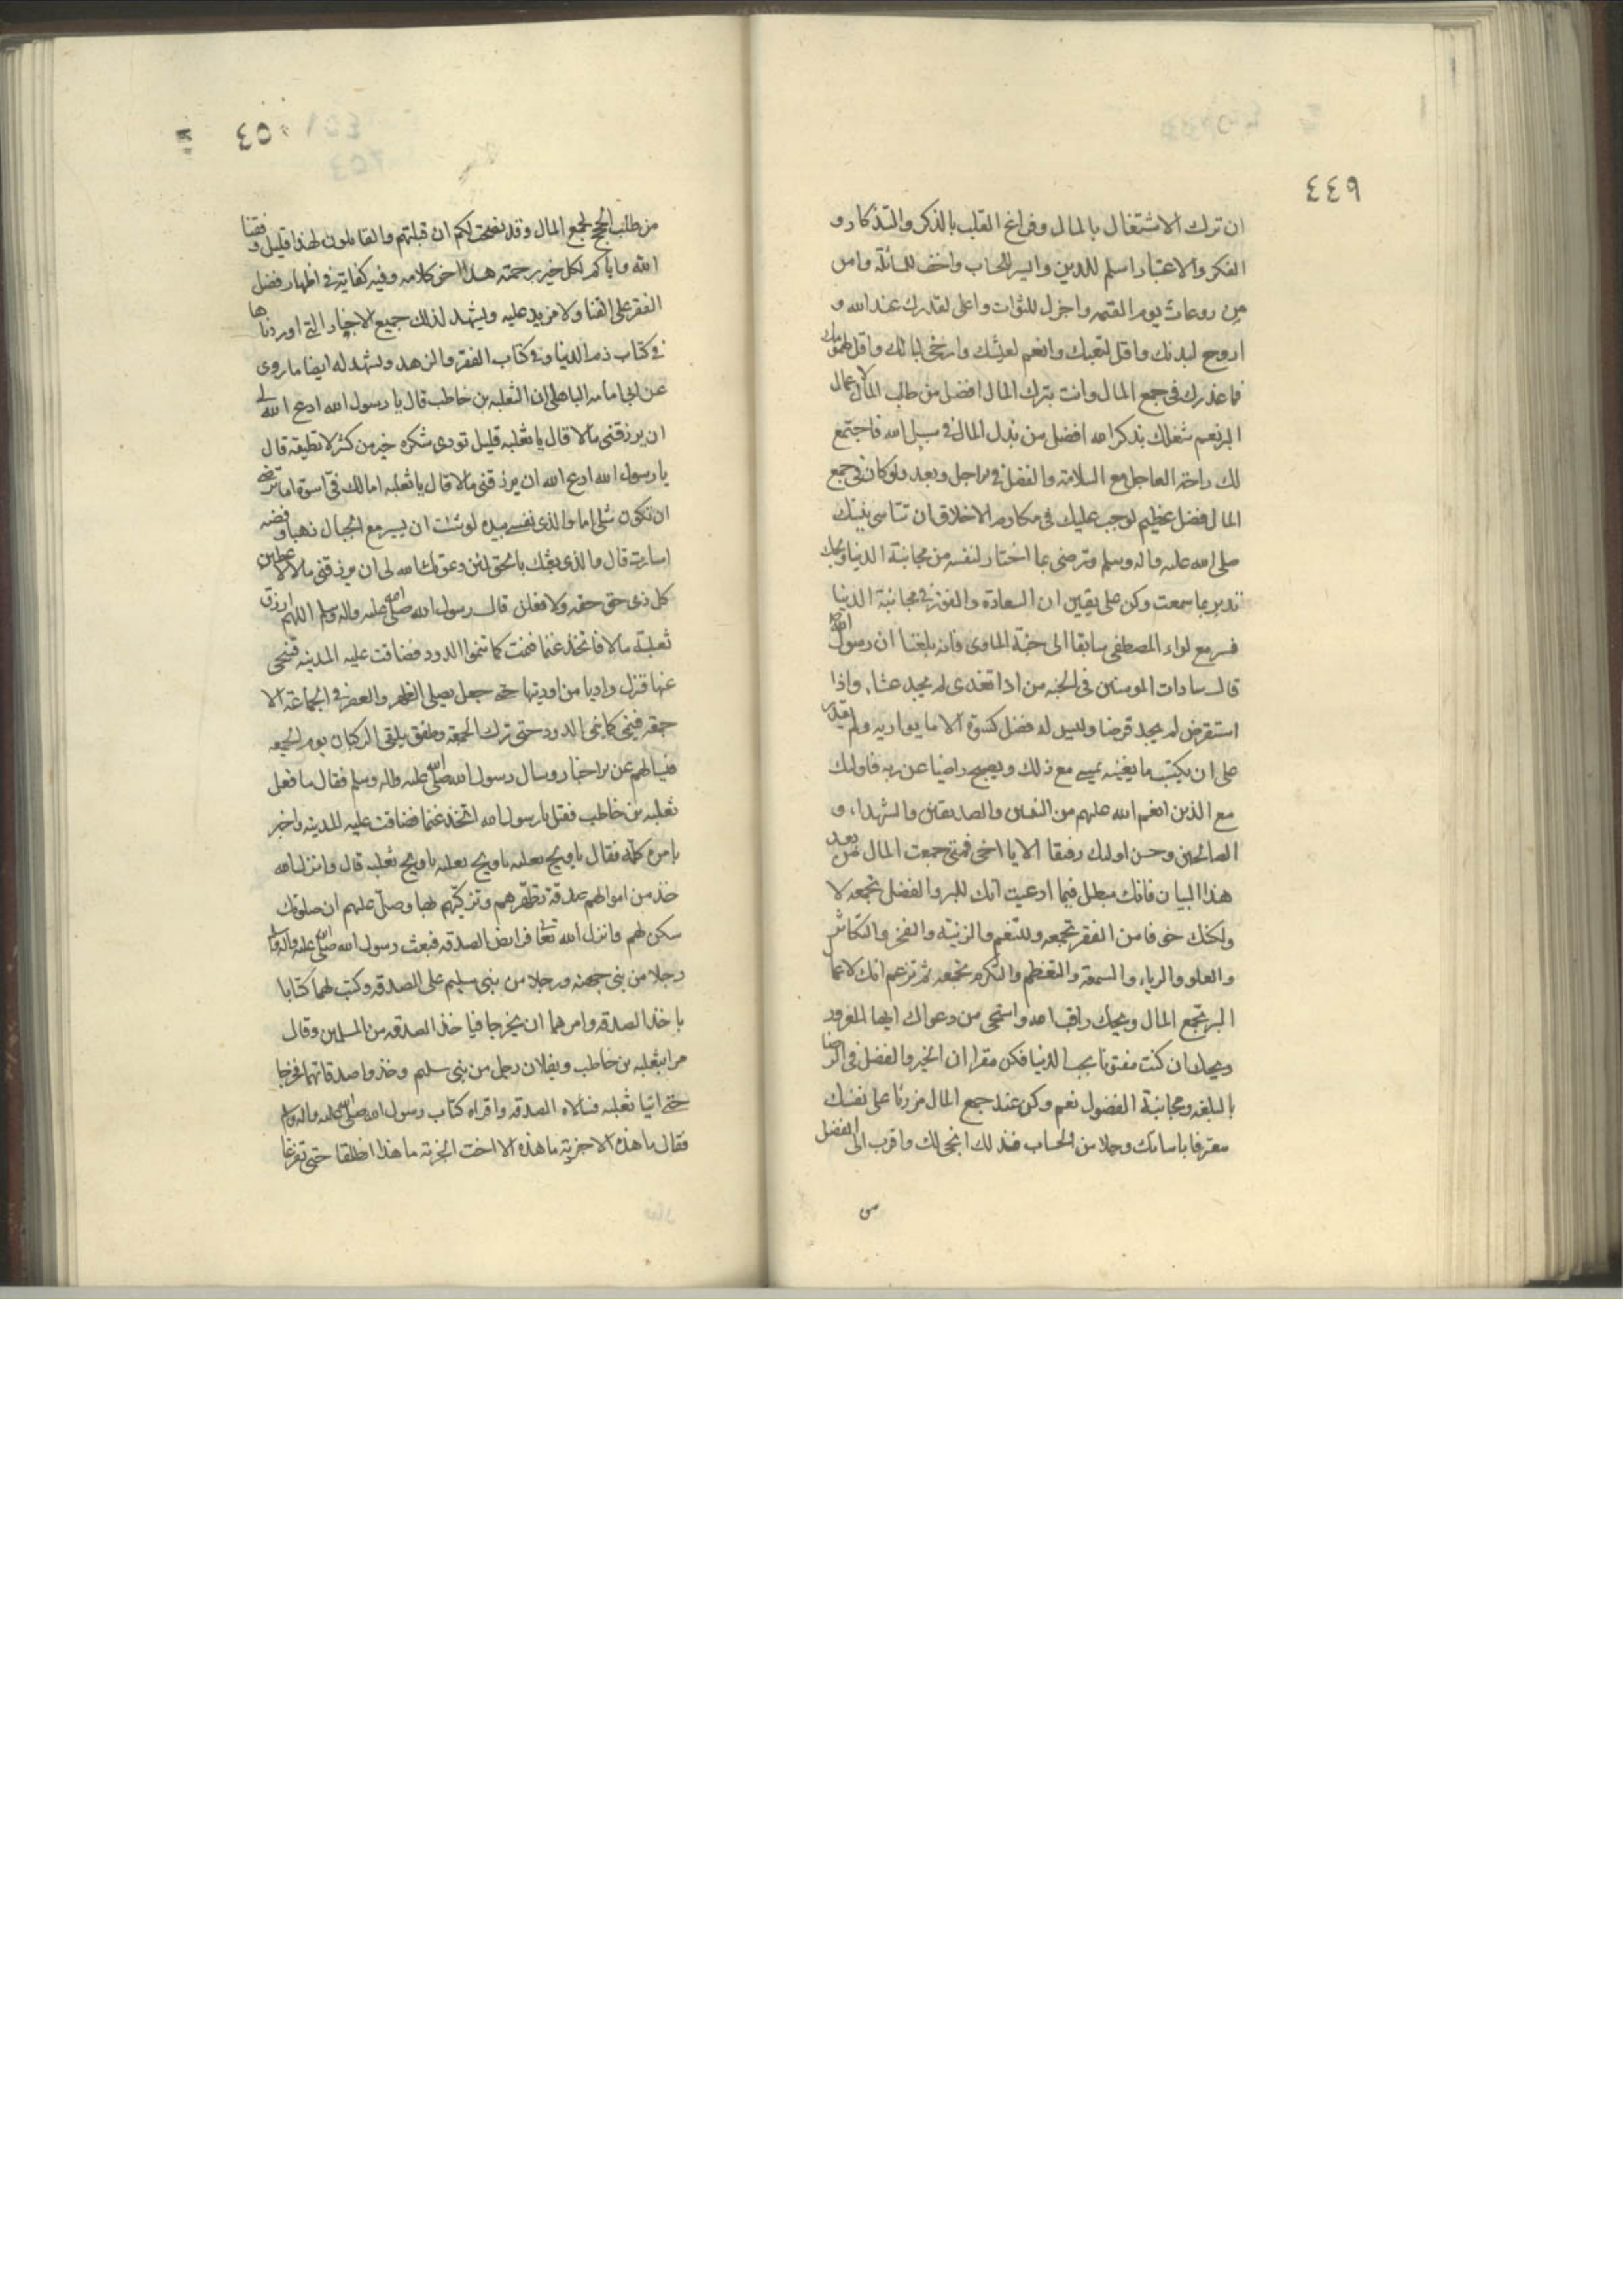 ٤٤٩
ان ترك الاشتغال بالمال وفراغ القلب بالذكر والتذكار و
الفكر والاعتبار اسلم للدين وايسر للحساب واخف للمسائلة وامن
من روعات يوم القيمه واجزل للثواب واعلى لقدرك عند الله و
اروح لبدنك واقل لتعبك وانعم لعيشك وارخى لبالك واقل لهمومك
فما عذرك فى جمع المال وانت بترك المال افضل من طالب المال لاعمال
البر نعم شغلك بذكر الله افضل من بذل المال فى سبيل الله فاجتمع
لك راحة العاجل مع السلامة والفضل فى الاجل وبعد ولو كان فى جمع
المال فضل عظيم لوجب عليك فى مكارم الاخلاق ان تتاسى بنبيك
صلى الله عليه واله وسلم وترضى بما اختار لنفسه من مجانبة الدنيا ويحك
تدبر بما سمعت وكن على يقين ان السعادة والفوز فى مجانبة الدنيا
فسر مع لواء المصطفى سابقا الى جنة الماوى فانه بلغنا ان رسول الله
قال سادات المومنين فى الجنه من اذا تغدى لم يجد عشاء واذا
استقرض لم يجد قرضا وليس له فضل كسوة الا ما يواريه ولم يقدر
على ان يكتسب ما يغنيه يمسى مع ذلك ويصبح راضيا عن ربه فاولئك
مع الذين انعم الله عليهم من النبيين والصديقين والشهداء و
الصالحين وحسن اولئك رفيقا الا يا اخى فمتى جمعت المال من بعد
هذا البيان فانك مبطل فيما ادعيت انك للبر والفضل تجمعه لا
ولكنك خوفا من الفقر تجمعه وللتنعم والزينة والفخر والتكاثر
والعلو والرياء والسمعة والتعظم والتكرم تجمعه ثم تزعم انك لاعمال
البر تجمع المال ويحك راقب الله واستحى من دعواك ايها المغرور
ويحك ان كنت مفتونا بحب الدنيا فكن مقرا ان الخير والفضل فى الرضا
بالبلغه ومجانبة الفضول نعم وكن عند جمع المال مزريا على نفسك
معترفا باساتك وجلا من الحساب فذلك انجى لك واقرب الى الفضل
من
٤٥٠
من طلب الحج لجمع المال وقد نصحت لكم ان قبلتم والقابلون لهذا قليل وفقنا
الله واياكم لكل خير برحمته هذا اخر كلامه وفيه كفاية فى اظهار فضل
الفقر على الغنا ولا مزيد عليه ويشهد لذلك جميع الاخبار التى اوردناها
فى كتاب ذم الدنيا وفى كتاب الفقر والزهد ويشهد له ايضا ما روى
عن ابى امامه الباهلى ان الثعلبه بن خاطب قال يا رسول الله ادع الله لى
ان يرزقنى مالا قال يا ثعلبه قليل تودى شكره خير من كثير لا تطيقه قال
يا رسول الله ادع الله ان يرزقنى مالا قال يا ثعلبه امالك فى اسوة اما ترضى
ان تكون مثلى اما والذى نفسى بيده لو شئت ان يسير مع الجبال ذهبا وفضه
لسارت قال والذى بعثك بالحق لئن دعوتك الله لى ان يرزقنى مالا لاعطين
كل ذى حق حقه ولافعلن قال رسول الله صلى الله عليه واله وسلم اللهم ارزق
ثعلبة مالا فاتخذ غنما فنمت كما تنموا الدود فضاقت عليه المدينه فتنحى
عنها فنزل واديا من اوديتها حتى جعل يصلى الظهر والعصر فى الجماعة الا
جمعه فينمى كما ينمى الدود حتى ترك الجمعه وطفق يلقى الركبان يوم الجمعه
فيسالهم عن الاخبار وسال رسول الله صلى الله عليه واله وسلم فقال ما فعل
ثعلبه بن خاطب فقيل يا رسول الله اتخذ غنما فضاقت عليه المدينه واخبر
بامره كله فقال يا ويح ثعلبه يا ويح ثعلبه يا ويح ثعلبه قال وانزل الله
خذ من اموالهم صدقة تطهرهم وتزكيهم لها وصل عليهم ان صلوتك
سكن لهم وانزل الله تعالى فرايض الصدقه فبعث رسول الله صلى الله عليه واله وسلم
رجلا من بنى جهينه ورجلا من بنى سليم على الصدقه وكتب لهما كتابا
باخذ الصدقه وامرهما ان يخرجا فياخذ الصدقه من المسلمين وقال
مرا بثعلبه بن خاطب وبفلان رجل من بنى سليم وخذوا صدقاتهما فخرجا
حتى اتيا ثعلبه فسالاه الصدقه واقراه كتاب رسول الله صلى الله عليه واله وسلم
فقال ما هذه الا جزية ما هذه الا اخت الجزية ما هذا انطلقا حتى تفرغا